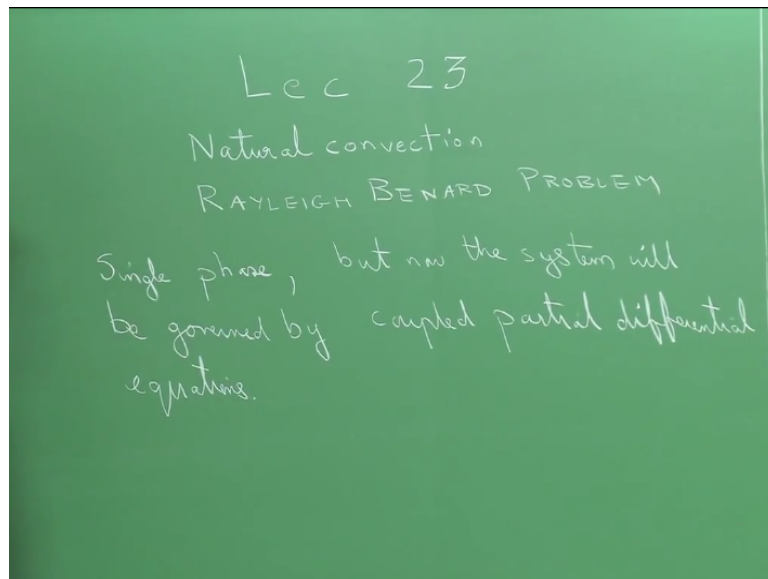 Lec 23
Natural convection
RAYLEIGH BENARD PROBLEM
Single phase, but now the system will
be governed by coupled partial differential
equations.